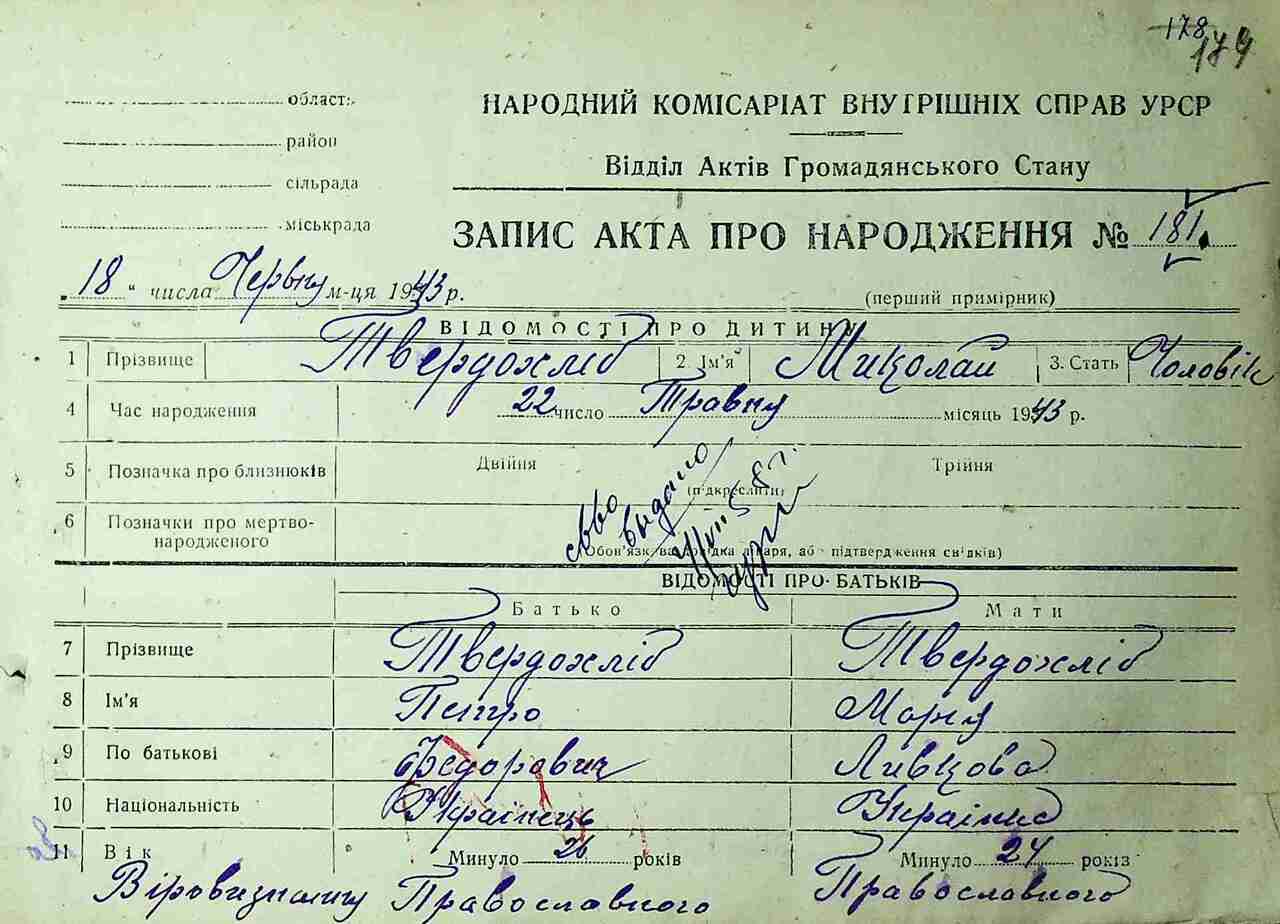 178
179
область
район
сільрада
міськрада
НАРОДНИЙ КОМІСАРІАТ ВНУТРІШНІХ СПРАВ УРСР
Відділ Актів Громадянського Стану
ЗАПИС АКТА ПРО НАРОДЖЕННЯ № 181
„ 18 “ числа Червня м-ця 1943 р.
(перший примірник)
ВІДОМОСТІ ПРО ДИТИНУ
1 Прізвище Твердохліб 2. Ім'я Миколай 3. Стать Чоловік
4 Час народження 22 число Травня місяць 1943 р.
5 Позначка про близнюків Двійня Трійня
(підкреслити)
6 Позначки про мертво-
народженого
(Обов'язкова довідка лікаря, або підтвердження свідків)
выдано
ВІДОМОСТІ ПРО БАТЬКІВ
Батько Мати
7 Прізвище Твердохліб Твердохліб
8 Ім'я Петро Мария
9 По батькові Федорович
10 Національність Українець Українка
11 Вік Минуло 26 років Минуло 24 років
Віровизнання Православного Православного